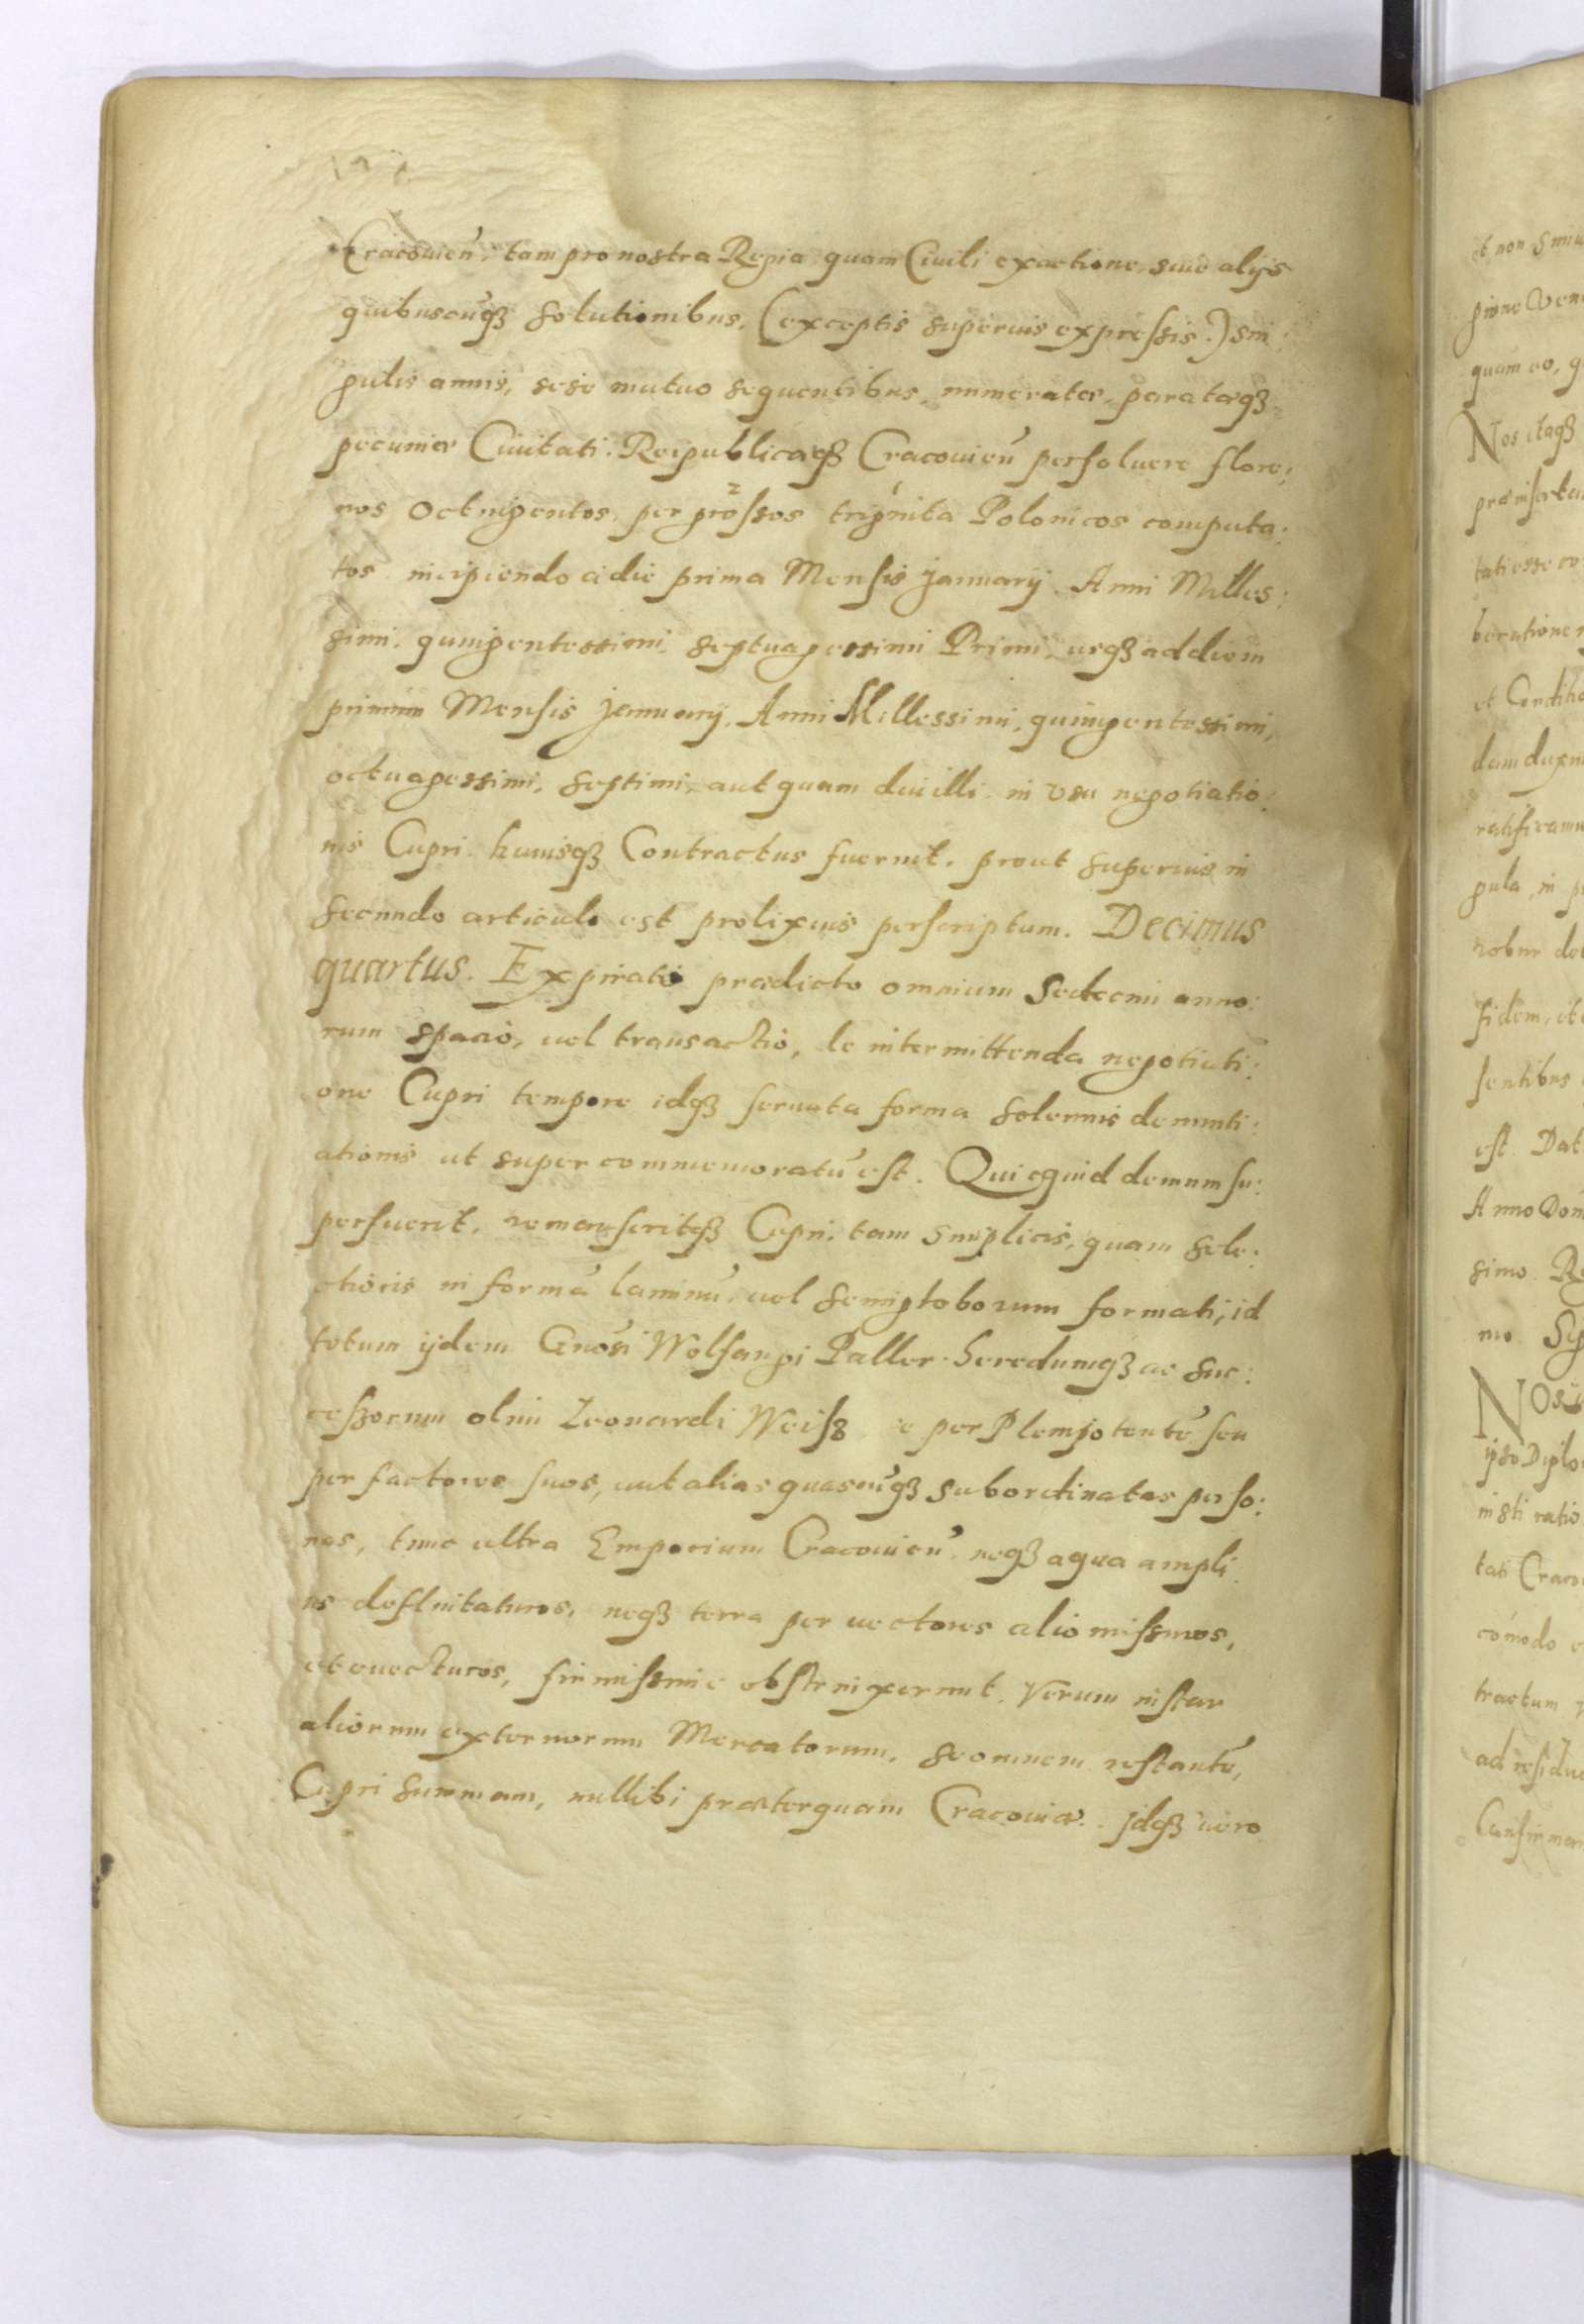 Cracouieñ. tam pro nostra Regia quam Ciuili exactione, siue alijs
quibuscũqȝ solutionibus, (exceptis superius expressis.) sin:
gulis annis, sese mutuo sequentibus, numeratæ, paratæqȝ
pecuniæ Ciuitati: Reipublicæqȝ Cracouieñ persoluere flore:
nos octingentos, per grossos triginta Polonicos computa:
tos incipiendo a die prima Mensis Januarij. Anni Milles:
simi. quingentessimi. septuagessimi Primi, usqȝ ad diem
primum Mensis Januarij. Anni Millessimi, quingentessimi,
octuagessimi, septimi, aut quam diu illi in usu negotiatio:
nis Cupri. huiusqȝ Contractus fuerint. prout superius in
secundo articulo est prolixius perscriptum. Decimus
quartus. Expirato prædicto omnium Sedecim anno:
rum spacio, uel transactio, de intermittenda negotiati:
one Cupri tempore idqȝ seruata forma solennis denunti:
ationis ut super commemoratũ est. Quicquid demum su:
perfuerit, remanseritqȝ Cupri. tam simplicis, quam sele:
ctioris in formã laminũ. uel semigloborum formati, id
totum ijdem Gnosi Wolfangi Paller. heredumqȝ ac suc:
cessorum olim Leonardi Weiss e per Plenipotentẽ seu
per factores suos, aut alias quascũqȝ subordinatas perso:
nas, tunc ultra Emporium Cracouieñ neqȝ aqua ampli:
us defluitaturos, neqȝ terra per uectores alio missuros,
et euecturos, firmissimie obstrinxerunt. Verum instar
aliorum externorum Mercatorum. se omnem restantẽ,
Cupri summam, nullibi præterquam Cracouiæ. jdqȝ uero
et non simu
quam eo, q
Nos itaqȝ
tati esse co
beratione
et Conditio
ratificamu
gula, in p
fidem, et
sentibus
est. Dat
Anno Dom
simo. Re
mo. Sig
tati Craco
cõmodo e
tractum
ad residu
Confirmam